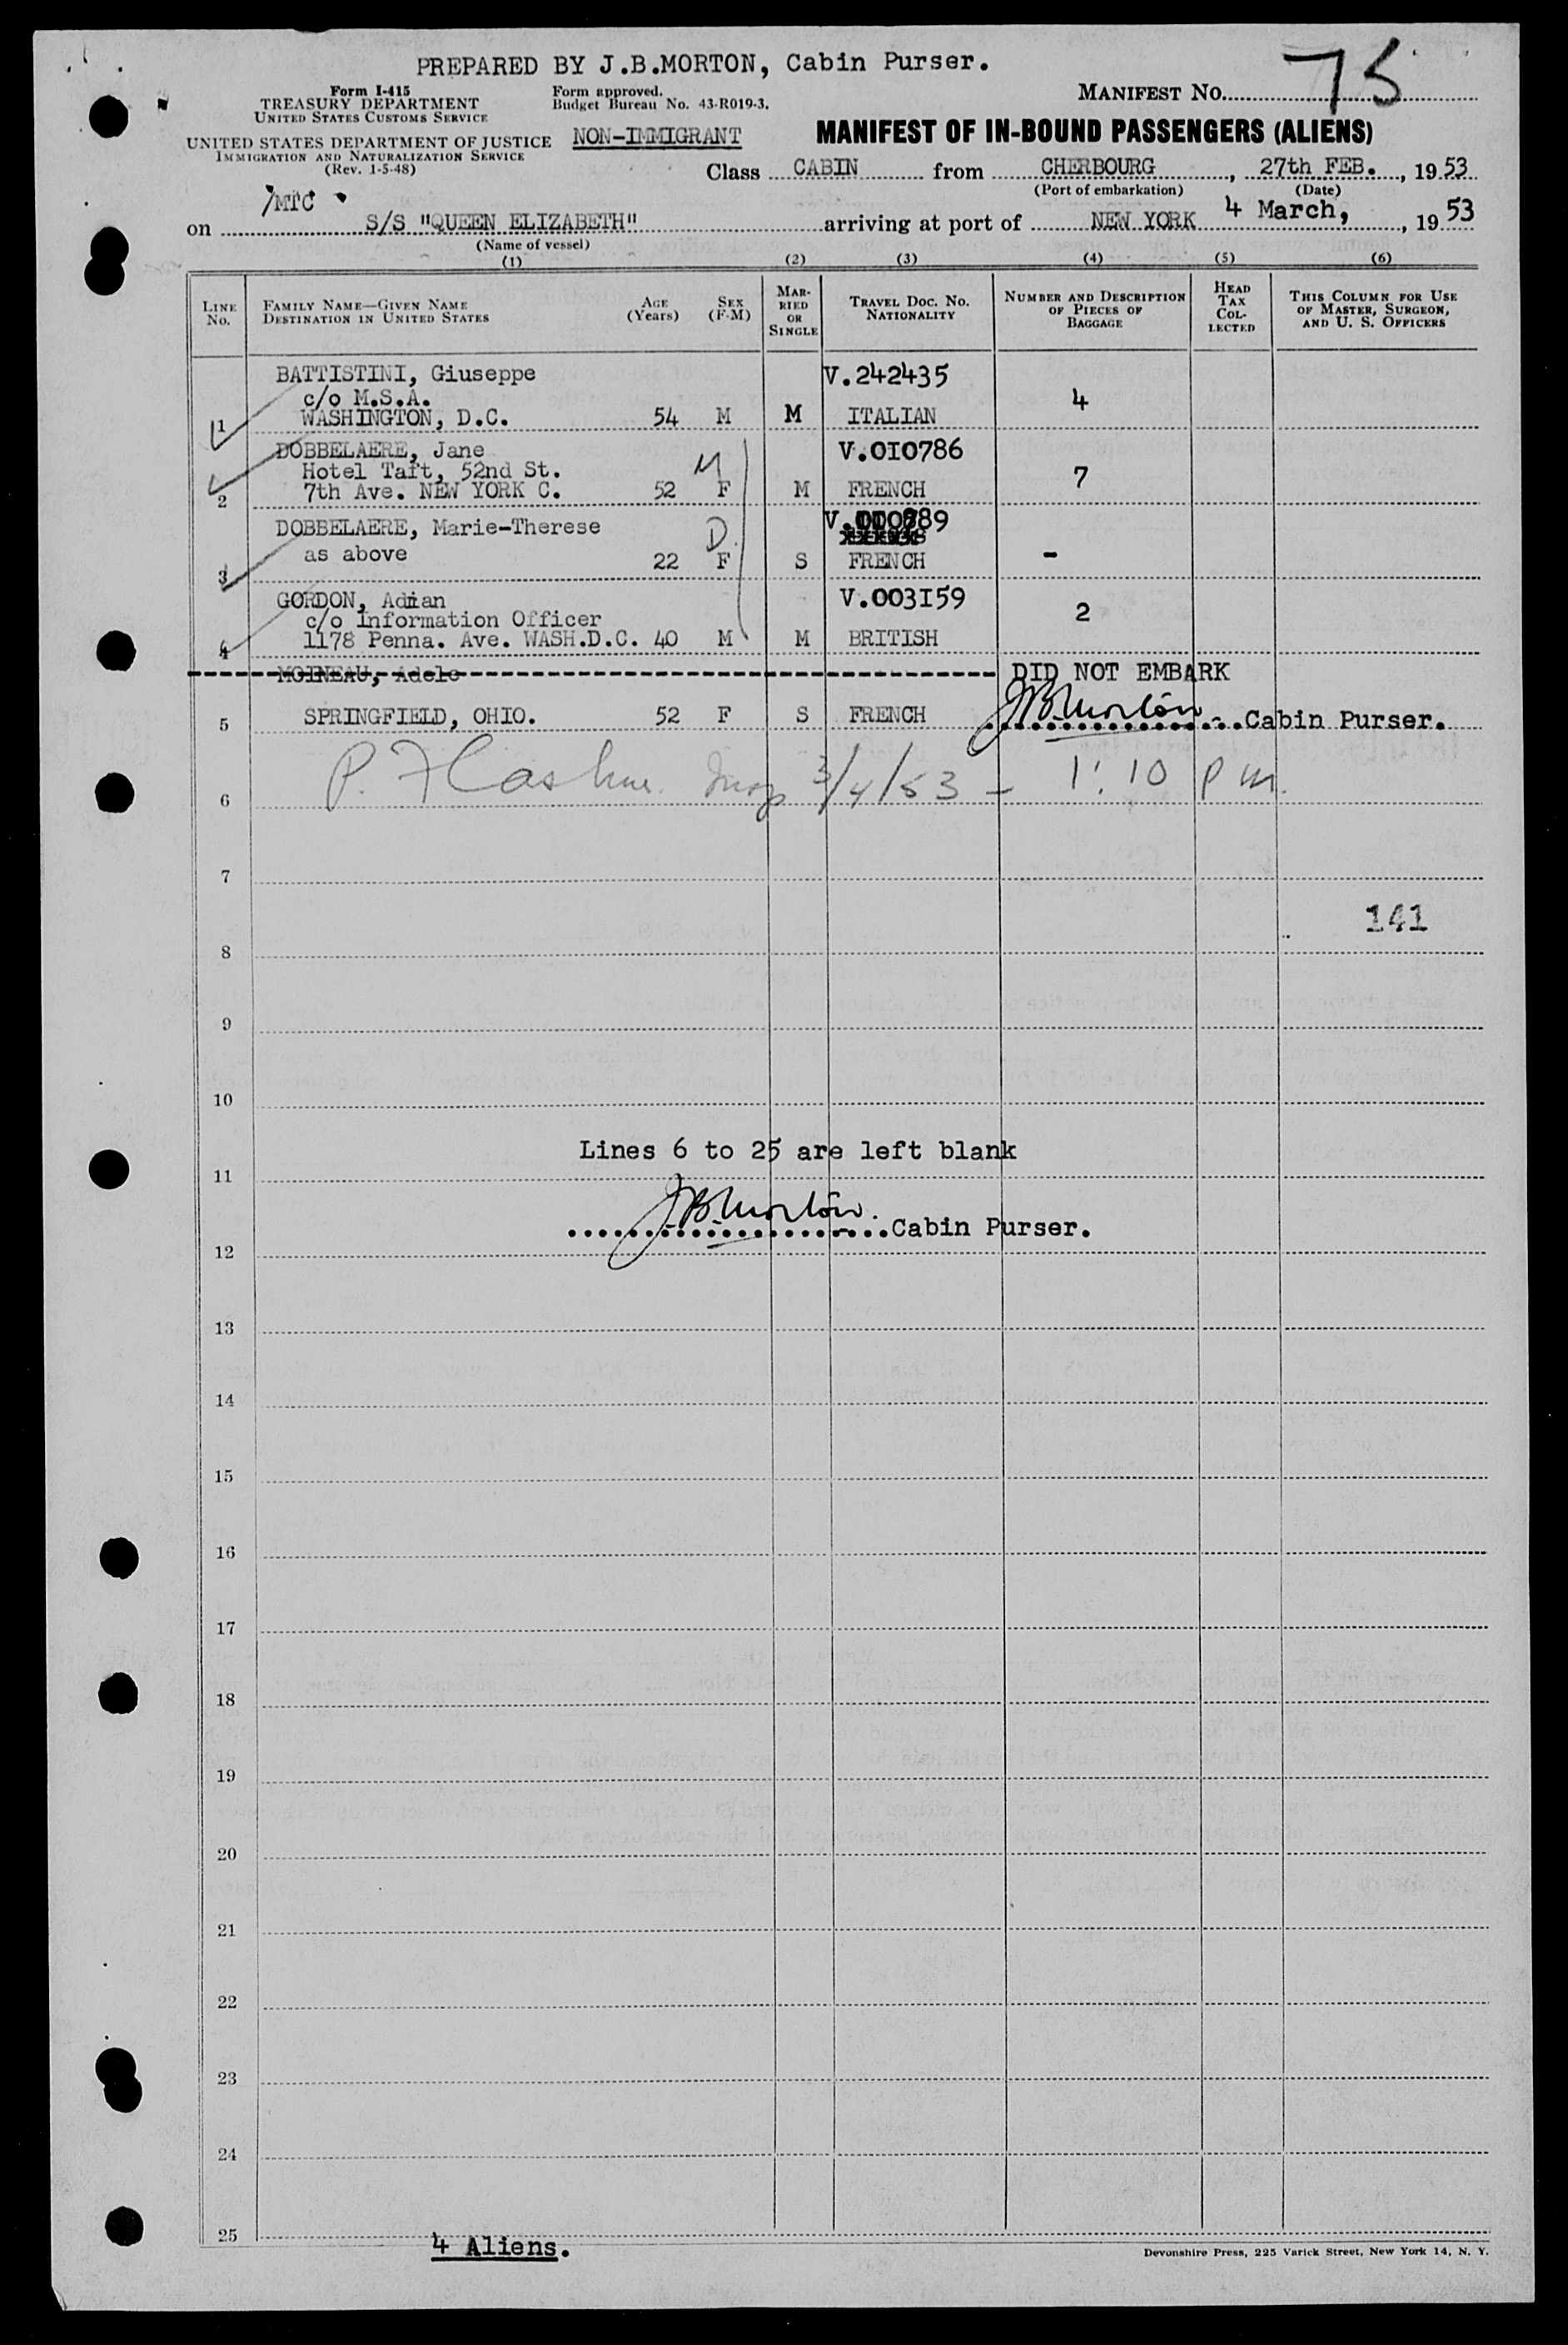 PREPARED BY J.B.MORTON, Cabin Purser.
75
Form I-415
TREASURY DEPARTMENT
UNITED STATES CUSTOMS SERVICE
Form approved.
Budget Bureau No. 43-R019-3.
MANIFEST NO.
UNITED STATES DEPARTMENT OF JUSTICE
IMMIGRATION AND NATURALIZATION SERVICE
(Rev. 1-5-48)
NON-IMMIGRANT
MANIFEST OF IN-BOUND PASSENGERS (ALIENS)
Class CABIN from CHERBOURG, 27th FEB., 1953
(Port of embarkation) (Date)
/MTC
on S/S "QUEEN ELIZABETH" arriving at port of NEW YORK 4 March, , 1953
(Name of vessel)
(1) (2) (3) (4) (5) (6)
LINE No. FAMILY NAME—GIVEN NAME DESTINATION IN UNITED STATES AGE (Years) SEX (F-M) MARRIED OR SINGLE TRAVEL DOC. NO. NATIONALITY NUMBER AND DESCRIPTION OF PIECES OF BAGGAGE HEAD TAX COLLECTED THIS COLUMN FOR USE OF MASTER, SURGEON, AND U. S. OFFICERS
BATTISTINI, Giuseppe V.242435
c/o M.S.A. 4
1 WASHINGTON, D.C. 54 M M ITALIAN
DOBBELAERE, Jane V.010786
Hotel Taft, 52nd St. M 7
2 7th Ave. NEW YORK C. 52 F M FRENCH
DOBBELAERE, Marie-Therese D
as above -
3 22 F S FRENCH
GORDON, Adrian V.003159
c/o Information Officer 2
4 1178 Penna. Ave. WASH.D.C. 40 M M BRITISH
MOINEAU, Adele DID NOT EMBARK
5 SPRINGFIELD, OHIO. 52 F S FRENCH JBMorton Cabin Purser.
6 3/4/53 - 1:10 pm.
7
141
8
9
10
Lines 6 to 25 are left blank
11
JBMorton. Cabin Purser.
12
13
14
15
16
17
18
19
20
21
22
23
24
25
4 Aliens.
Devonshire Press, 225 Varick Street, New York 14, N. Y.